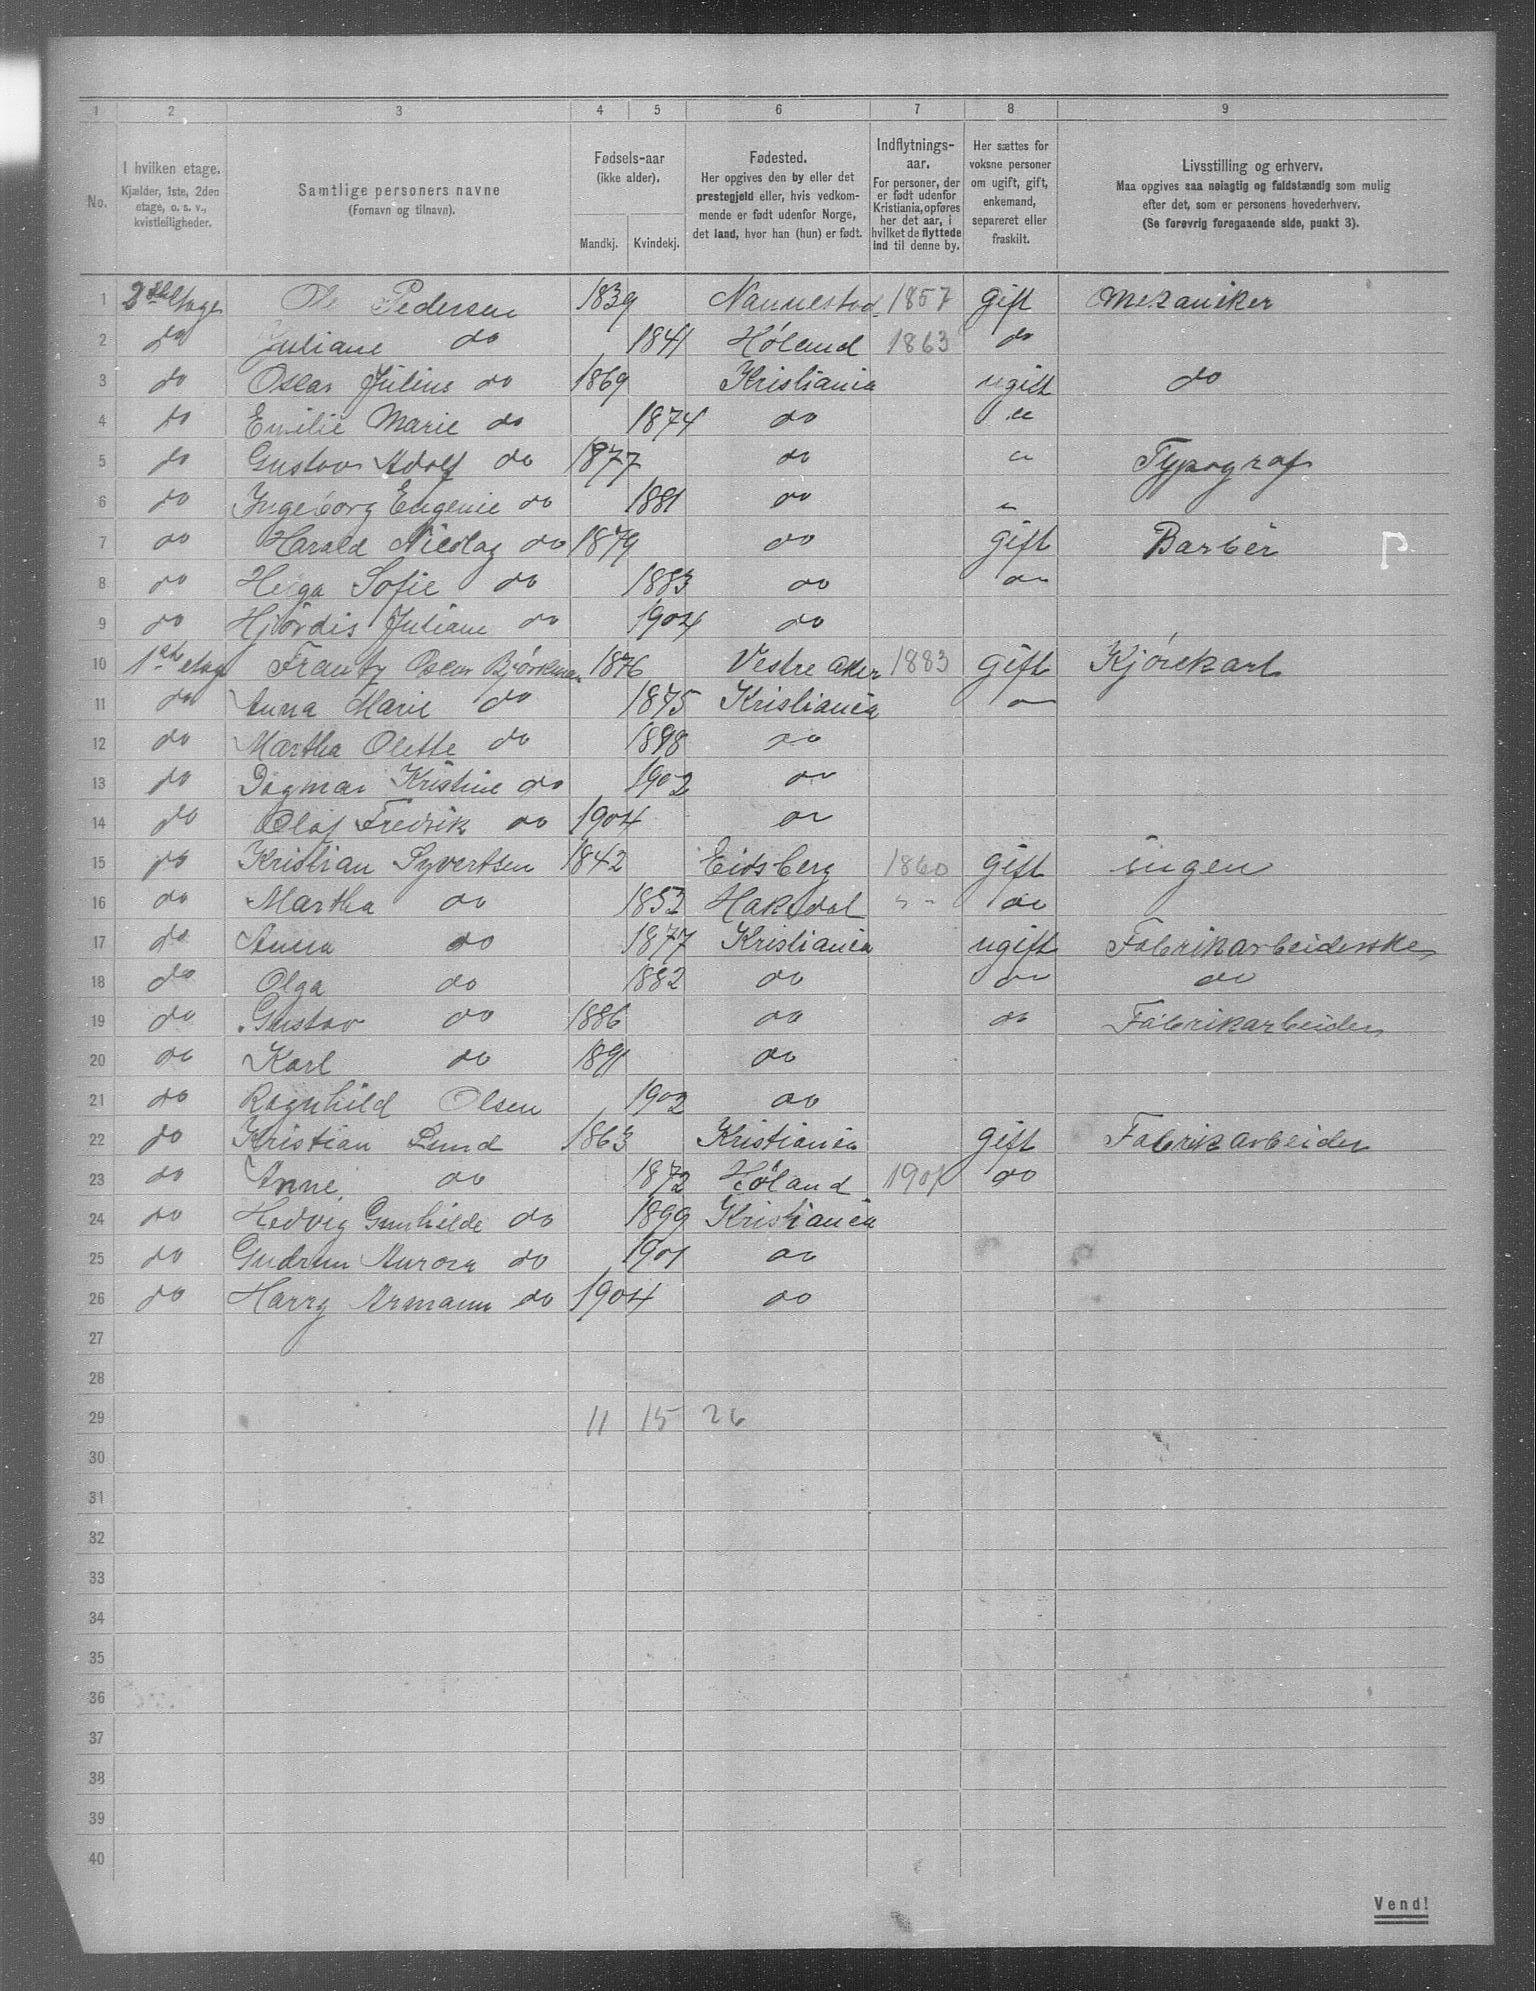 1 2 3 4 5 6 7 8 9
No.
I hvilken etage.
Kjælder, 1ste, 2den
etage, o. s. v.,
kvistleiligheder.
Samtlige personers navne
(Fornavn og tilnavn).
Fødsels-aar
(ikke alder).
Mandkj. Kvindekj.
Fødested.
Her opgives den by eller det
prestegjeld eller, hvis vedkom-
mende er født udenfor Norge,
det land, hvor han (hun) er født.
Indflytnings-
aar.
For personer, der
er født udenfor
Kristiania, opføres
her det aar, i
hvilket de flyttede
ind til denne by.
Her sættes for
voksne personer
om ugift, gift,
enkemand,
separeret eller
fraskilt.
Livsstilling og erhverv.
Maa opgives saa nøiagtig og fuldstændig som mulig
efter det, som er personens hovederhverv.
(Se forøvrig foregaaende side, punkt 3).
1 2 etage Ole Pedersen 1839 Nannestad 1857 gift Mekaniker
2 do Juliane do 1841 Høland 1863 do
3 do Oscar Julius do 1869 Kristiania ugift do
4 do Emilie Marie do 1874 do "
5 do Gustav Adolf do 1877 do " Typograf
6 do Ingeborg Eugenie do 1881 do "
7 do Harald Nicolay do 1879 do gift Barber
8 do Helga Sofie do 1883 do do
9 do Hjördis Juliane do 1904 do
10 1ste etage Frantz Oscar Bjørkman 1876 Vestre Aker 1883 gift Kjørekarl
11 do Anna Marie do 1875 Kristiania do
12 do Martha Olette do 1898 do
13 do Dagmar Kristine do 1902 do
14 do Olaf Fredrik do 1904 do
15 do Kristian Syvertsen 1842 Eidsberg 1860 gift ingen
16 do Martha do 1852 Hakedal " - do
17 do Anna do 1877 Kristiania ugift Fabrikarbeiderske
18 do Olga do 1882 do do do
19 do Gustav do 1886 do do Fabrikarbeider
20 do Karl do 1891 do
21 do Ragnhild Olsen 1902 do
22 do Kristian Lund 1863 Kristiania gift Fabrikarbeider
23 do Anne do 1872 Høland 1901 do
24 do Hedvig Gunhilde do 1899 Kristiania
25 do Gudrun Aurora do 1901 do
26 do Harry Armann do 1904 do
27
28
29 11 15 26
30
31
32
33
34
35
36
37
38
39
40
Vend!